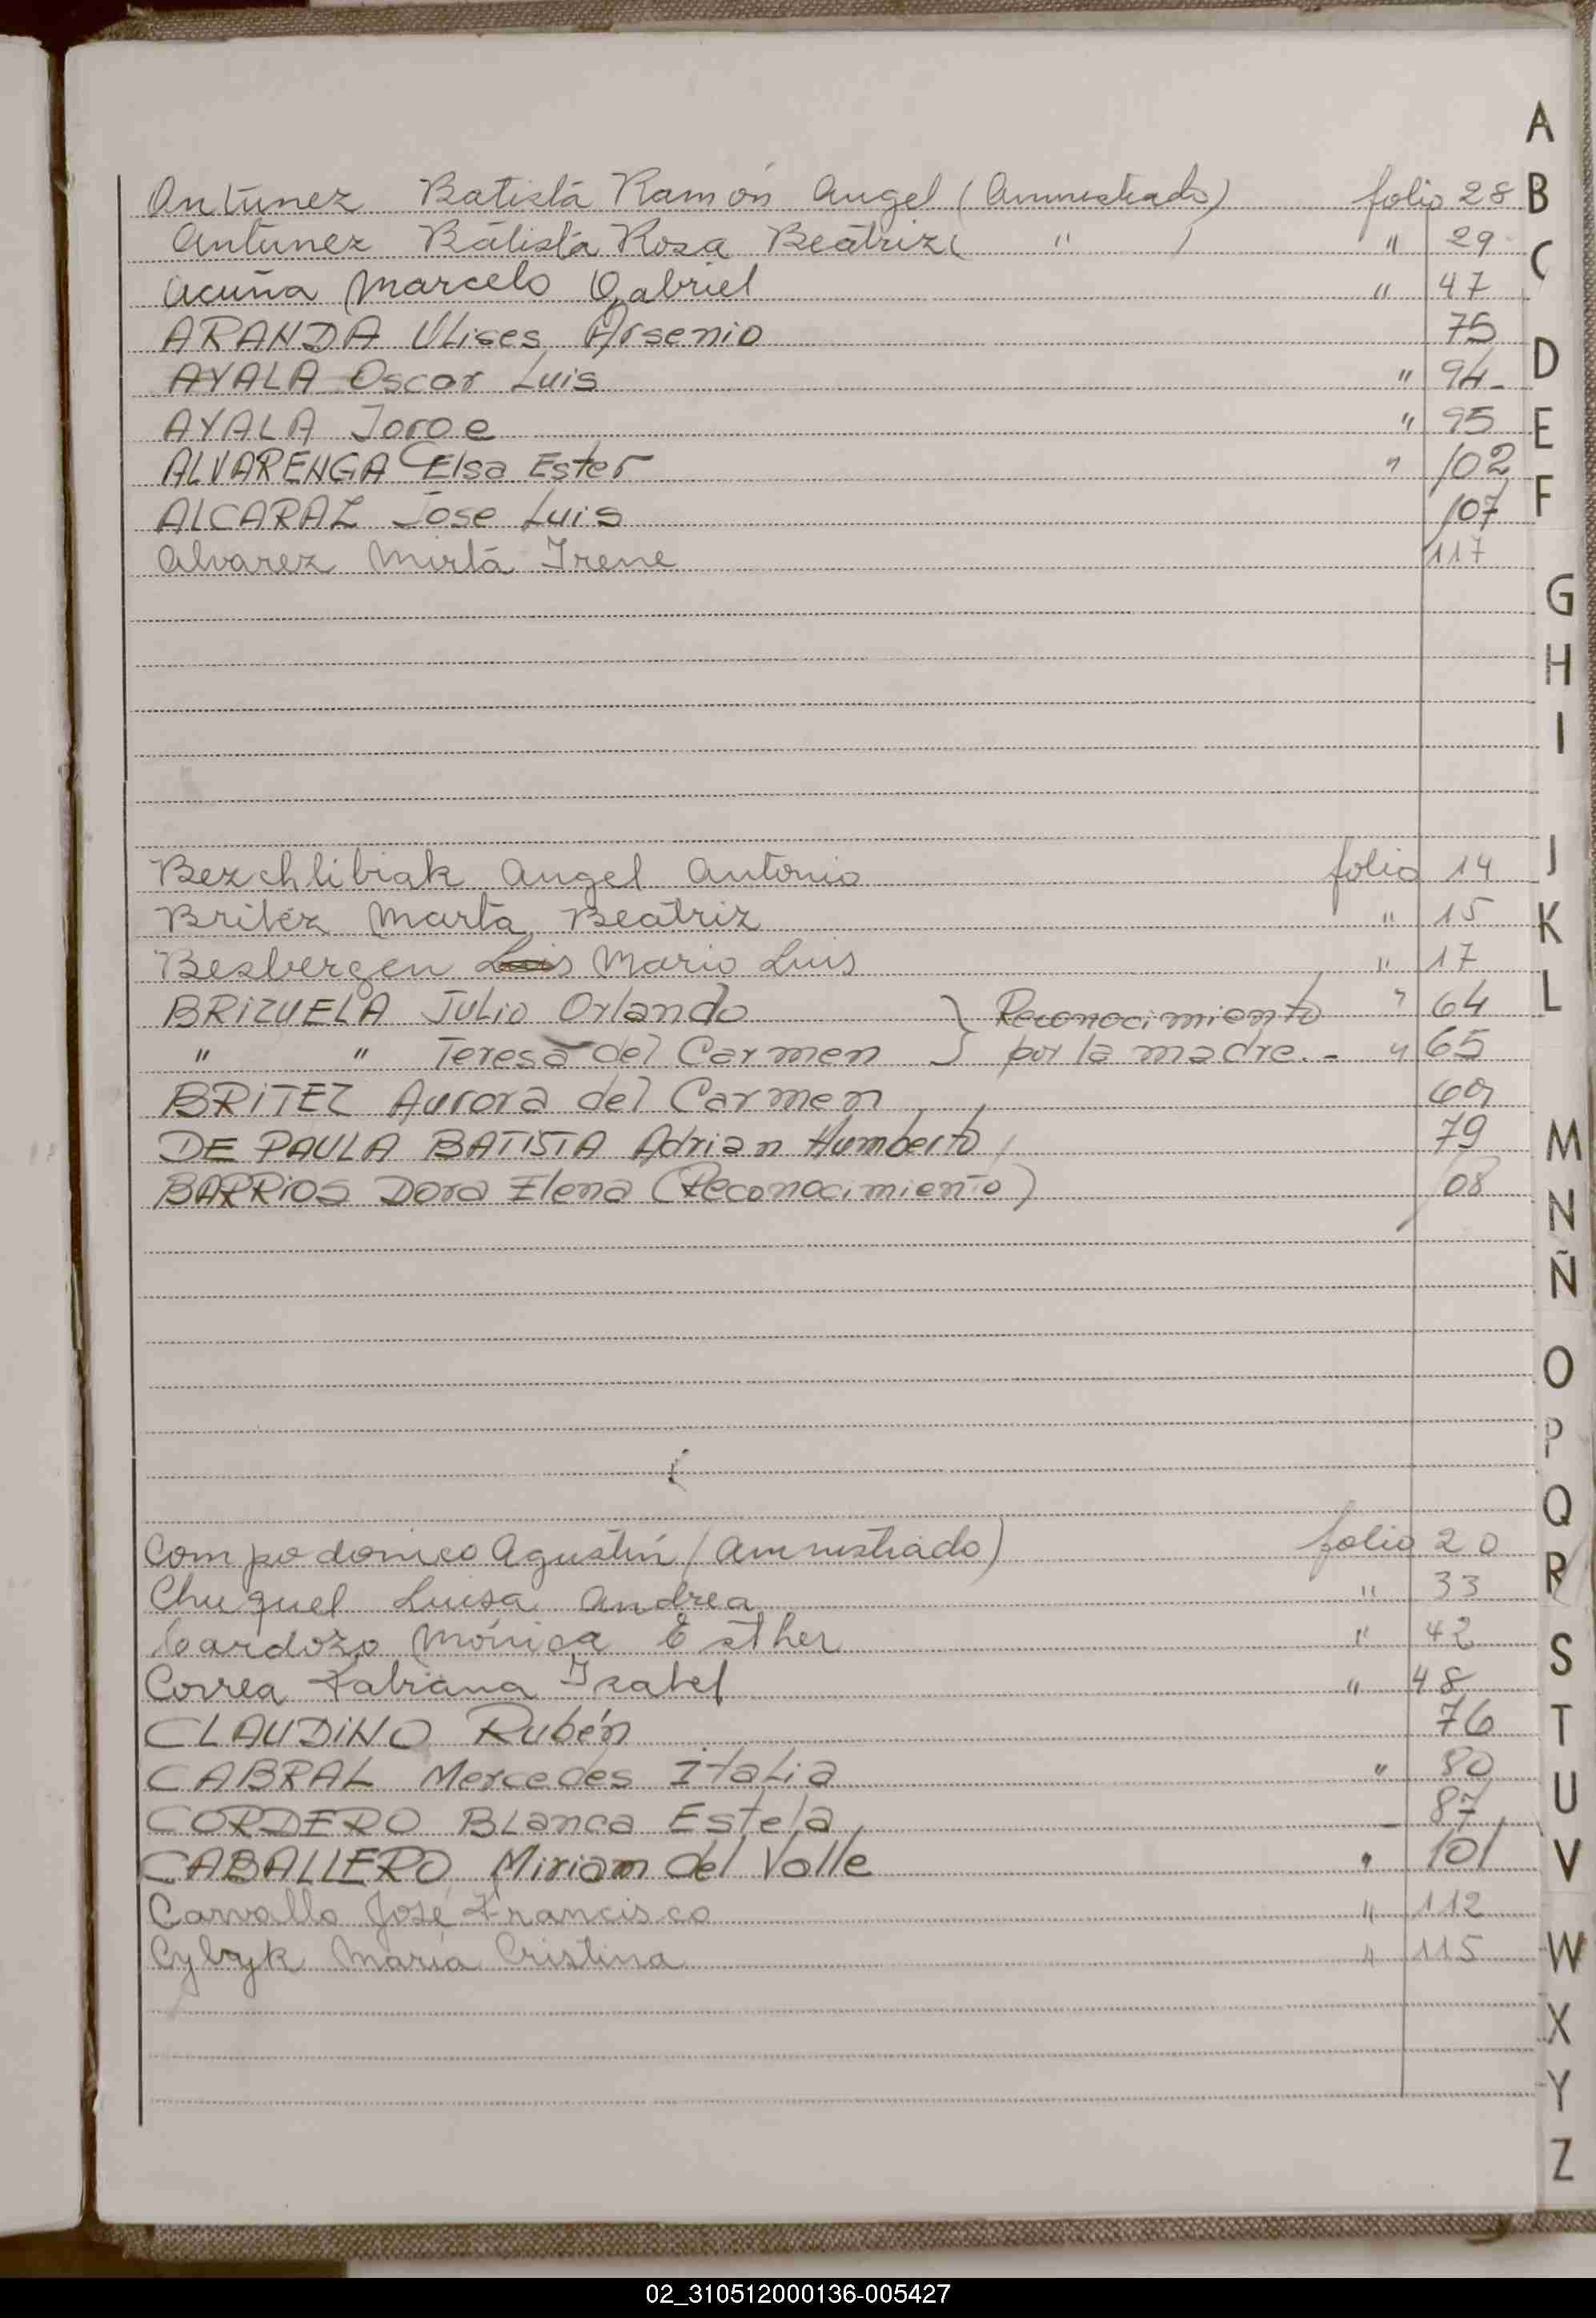 Antúnez Batista Ramón Angel (Amnistiado) folio 28
Antúnez Batista Rosa Beatriz ( " ) " 29
Acuña Marcelo Gabriel " 47
ARANDA Ulises Arsenio 75
AYALA Oscar Luis " 94_
AYALA Jorge " 95
ALVARENGA Elsa Ester " 102
ALCARAZ Jose Luis 107
Alvarez Mirta Irene 117
Bezchlibiak Angel Antonio folio 14
Britez Marta Beatriz " 15
Besbergen Luis Mario Luis " 17
BRIZUELA Julio Orlando } Reconocimiento " 64
" " Teresa del Carmen } por la madre.- " 65
BRITEZ Aurora del Carmen 69
DE PAULA BATISTA Adrian Humberto 79
BARRIOS Dora Elena (Reconocimiento) 108
Compodonico Agustín (Amnistiado) folio 20
Chuquel Luisa Andrea " 33
Cardozo Mónica Esther " 42
Correa Fabiana Isabel " 48
CLAUDINO Rubén 76
CABRAL Mercedes Italia " 80
CORDERO Blanca Estela _ 87
CABALLERO Miriam del Valle " 101
Carvallo José Francisco " 112
Cybyk María Cristina " 115
A
B
C
D
E
F
G
H
I
J
K
L
M
N
Ñ
O
P
Q
R
S
T
U
V
W
X
Y
Z
02_310512000136-005427